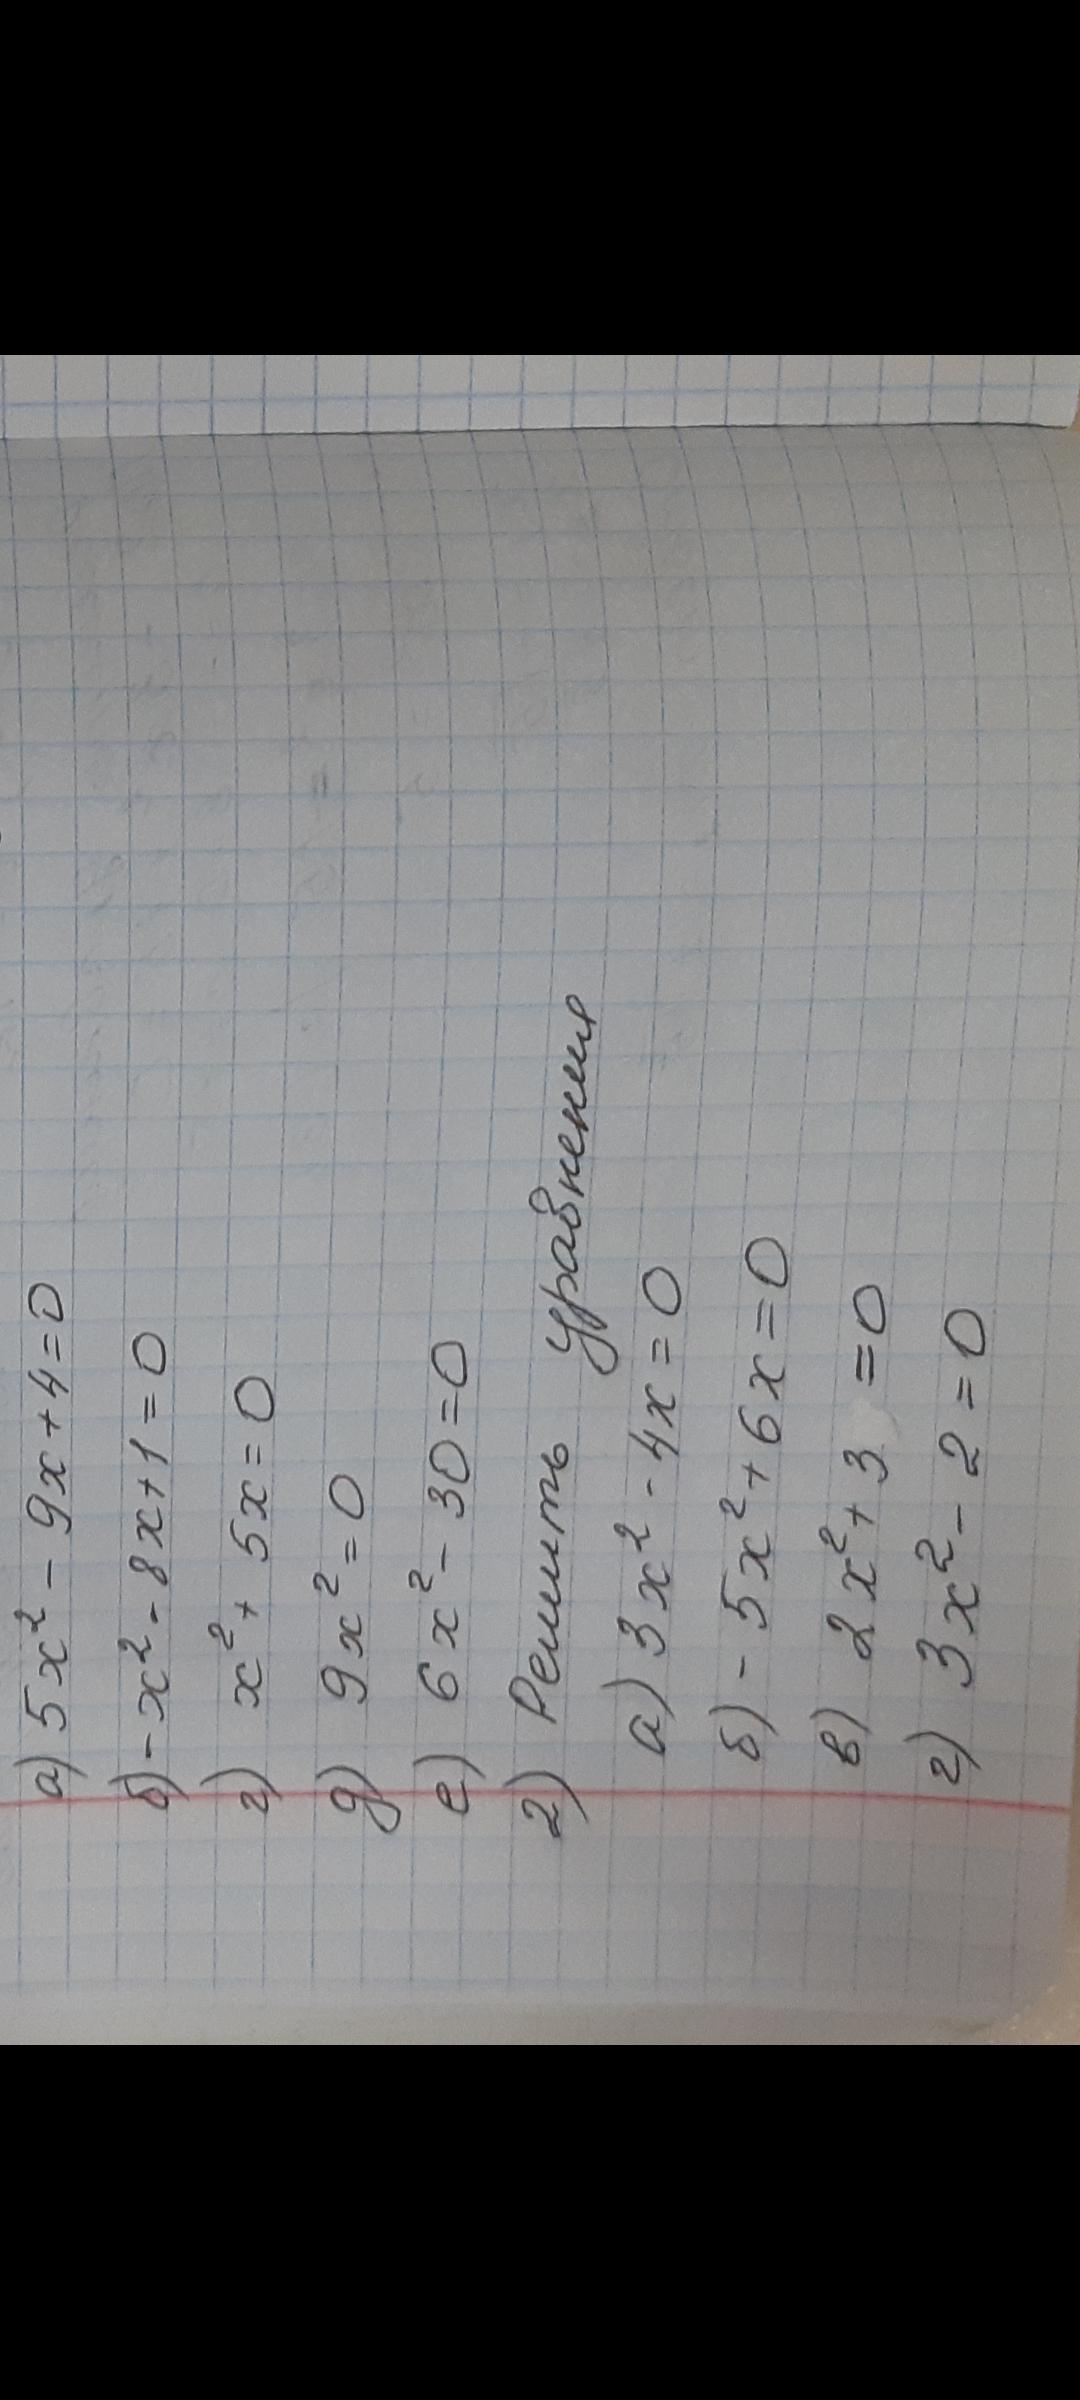 а) 5x² - 9x + 4 = 0
б) - x² - 8x + 1 = 0
г) x² + 5x = 0
д) 9x² = 0
е) 6x² - 30 = 0
2) Решить уравнения
а) 3x² - 4x = 0
б) - 5x² + 6x = 0
в) 2x² + 3 = 0
г) 3x² - 2 = 0